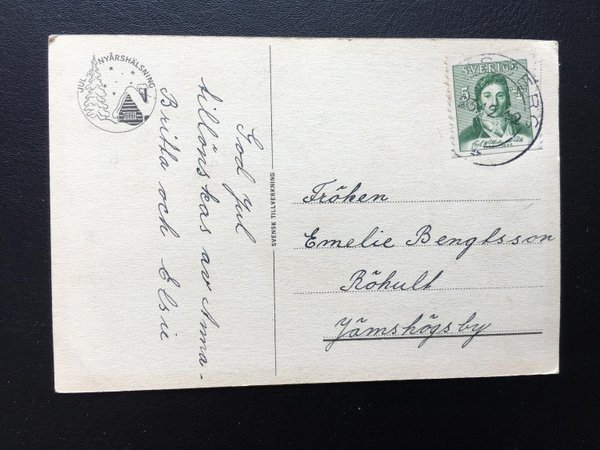 JUL NYÅRSHÄLSNING
God Jul
tillönskas av Anna-
Britta och Elsie
SVENSK TILLVERKNING
SVERIGE
5
Fröken
Emelie Bengtsson
Rökult
Jämshögsby